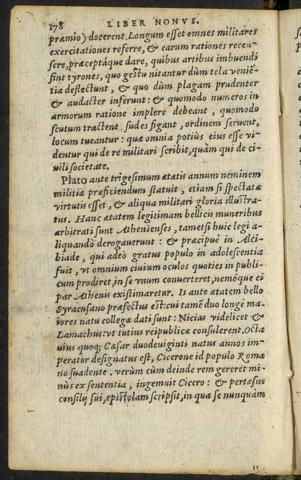 178 LIBER NONVS.
præmio) docerent. Longum esset omnes militares
exercitationes referre, & earum rationes recen-
sere, præceptáque dare, quibus artibus imbuendi
sint tyrones, quo gestu nitantur dùm tela veniē-
tia deflectunt, & quo dùm plagam prudenter
& audacter inferunt: & quomodo numeros in
armorum ratione implere debeant, quomodo
scutum tractent. sudes figant, ordinem seruent,
locum tueantur: quæ omnia potiùs eius esse vi-
dentur qui de re militari scribit, quàm qui de ci-
uili societate.
Plato ante trigesimum ætatis annum neminem
militiæ præficiendum statuit, etiam si spectatæ
virtutis esset, & aliqua militari gloria illustra-
tus. Hanc ætatem legitimam bellicis muneribus
arbitrati sunt Athenienses, tametsi huic legi a-
liquando derogauerunt: & præcipuè in Alci-
biade, qui adeò gratus populo in adolescentia
fuit, vt omnium ciuium oculos quoties in publi-
cum prodiret, in se vnum conuerteret, nemóque ei
par Athenis existimaretur. Is ante ætatem bello
Syracusano præfectus est: cui tamē duo longè ma-
iores natu collegæ dati sunt: Nicias videlicet &
Lamachus: vt tutius reipublicæ consulerent. Octa
uius quoq; Cæsar duodeuiginti natus annos im-
perator designatus est, Cicerone id populo Roma
no suadente. verùm cùm deinde rem gereret mi-
nùs ex sententia, ingemuit Cicero: & pertæsus
consilij sui, epistolam scripsit, in qua se nunquàm